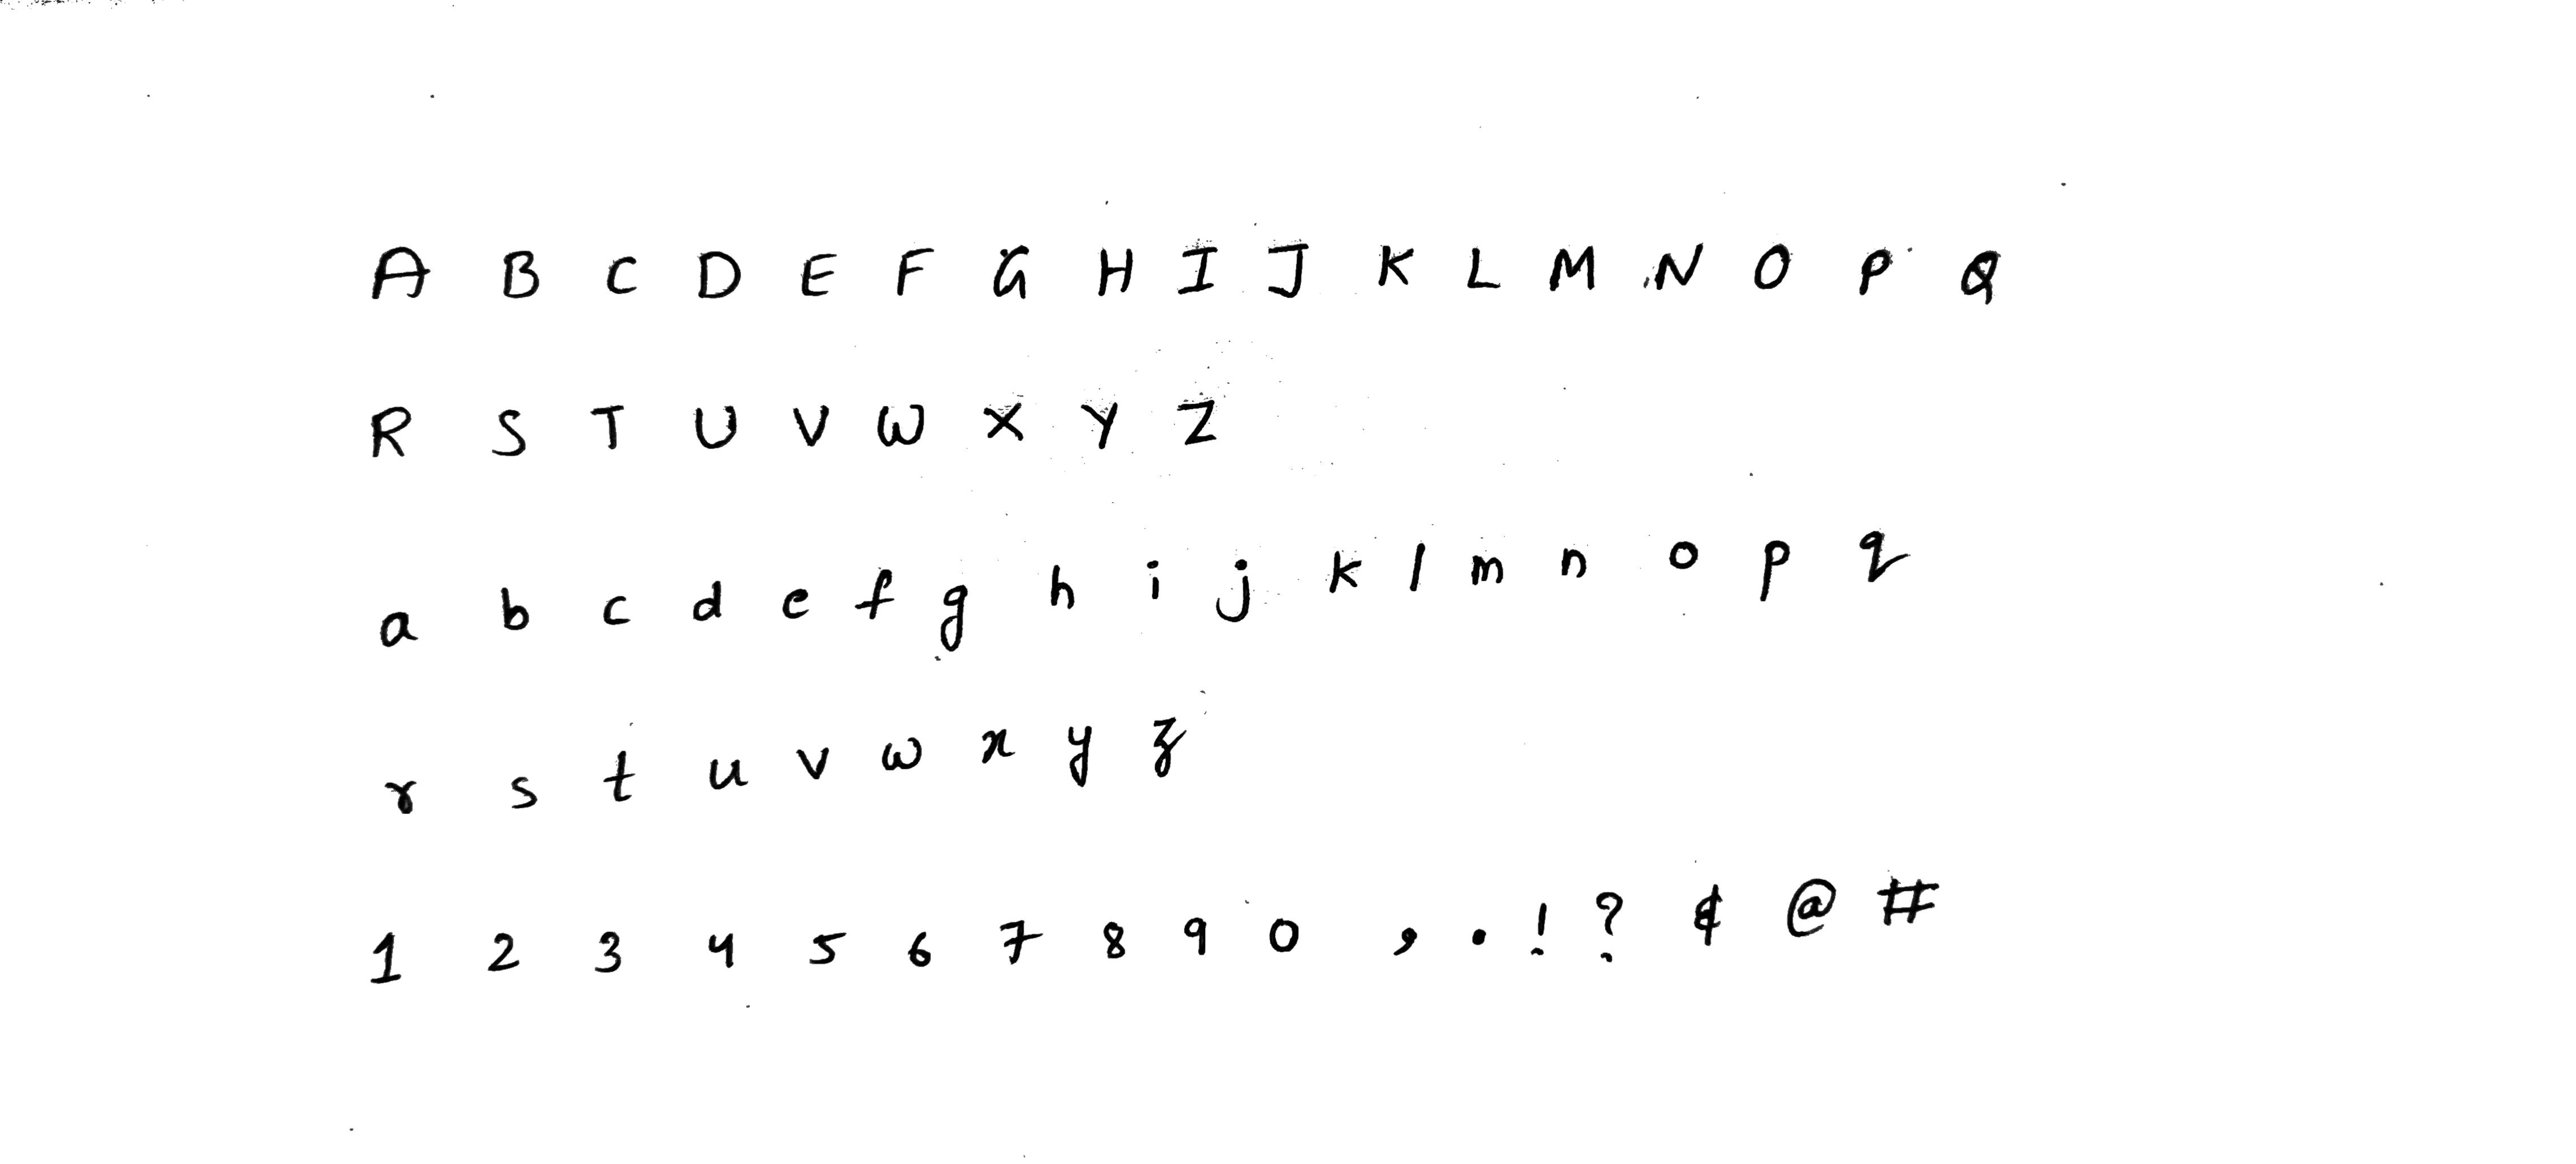 A B C D E F G H I J K L M N O P Q
R S T U V W X Y Z
a b c d e f g h i j k l m n o p q
r s t u v w x y z
1 2 3 4 5 6 7 8 9 0 , . ! ? & @ #